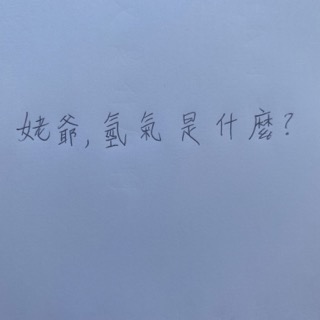 姥爺,氫氣是什麼?